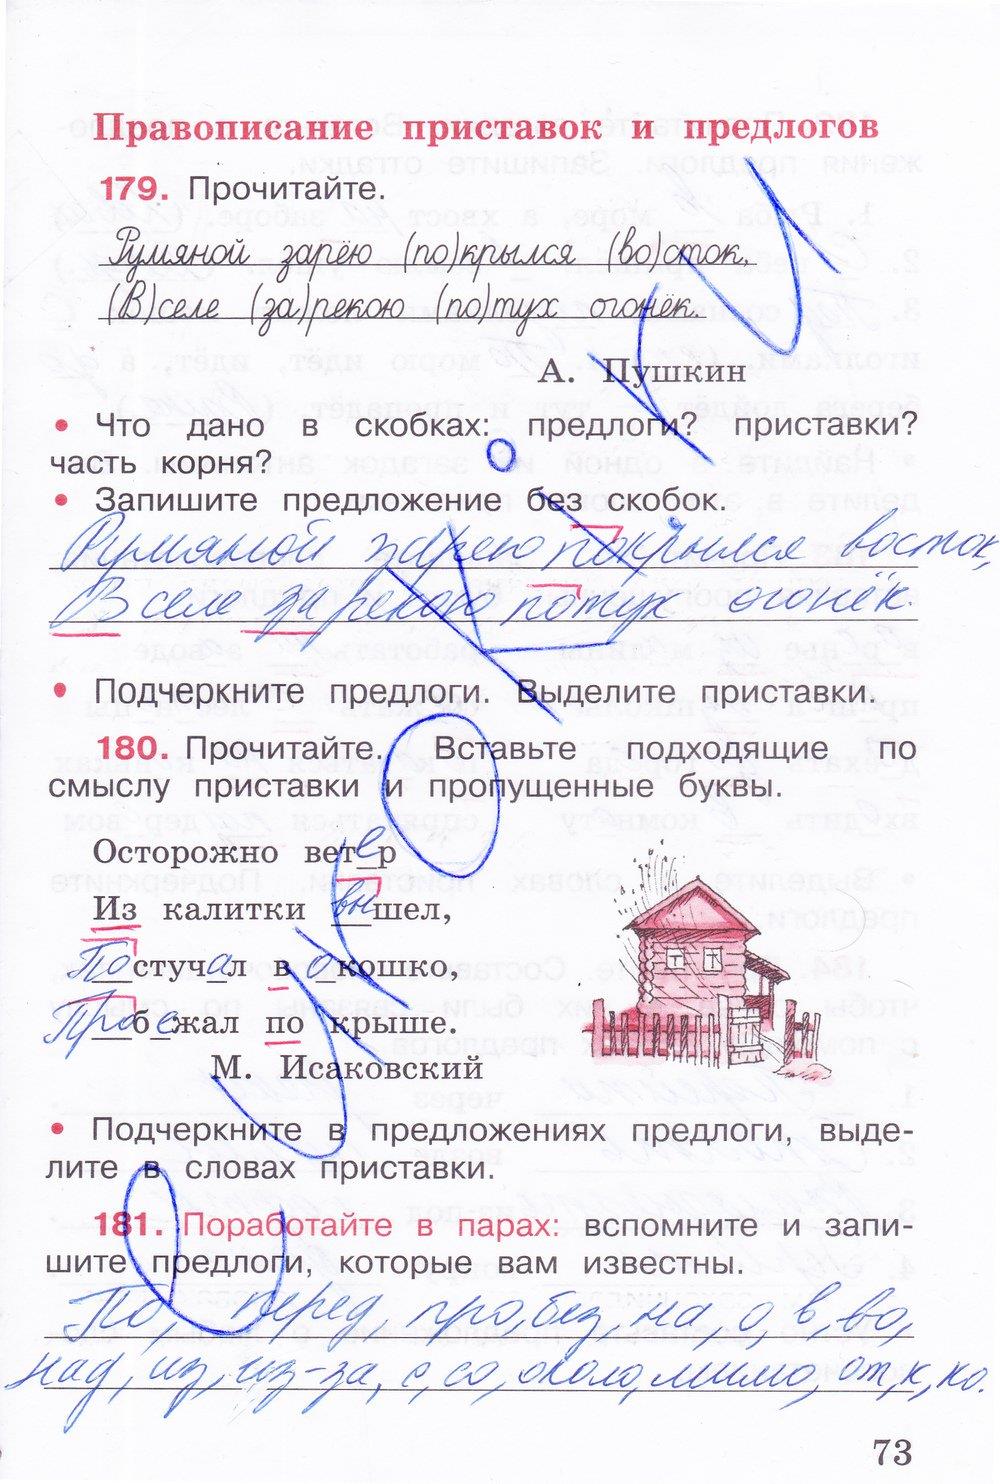 Правописание приставок и предлогов
179. Прочитайте.
Румяной зарёю (по)крылся (во)сток,
(В)селе (за)рекою (по)тух огонёк.
А. Пушкин
• Что дано в скобках: предлоги? приставки?
часть корня?
• Запишите предложение без скобок.
Румяной зарею покрылся восток,
В селе за рекою потух огонёк.
• Подчеркните предлоги. Выделите приставки.
180. Прочитайте. Вставьте подходящие по
смыслу приставки и пропущенные буквы.
Осторожно ветер
Из калитки вышел,
Постучал в окошко,
Пробежал по крыше.
М. Исаковский
• Подчеркните в предложениях предлоги, выде-
лите в словах приставки.
181. Поработайте в парах: вспомните и запи-
шите предлоги, которые вам известны.
По, перед, про, без, на, о, в, во,
над, из, из-за, с, со, около, мимо, от, к, ко.
73